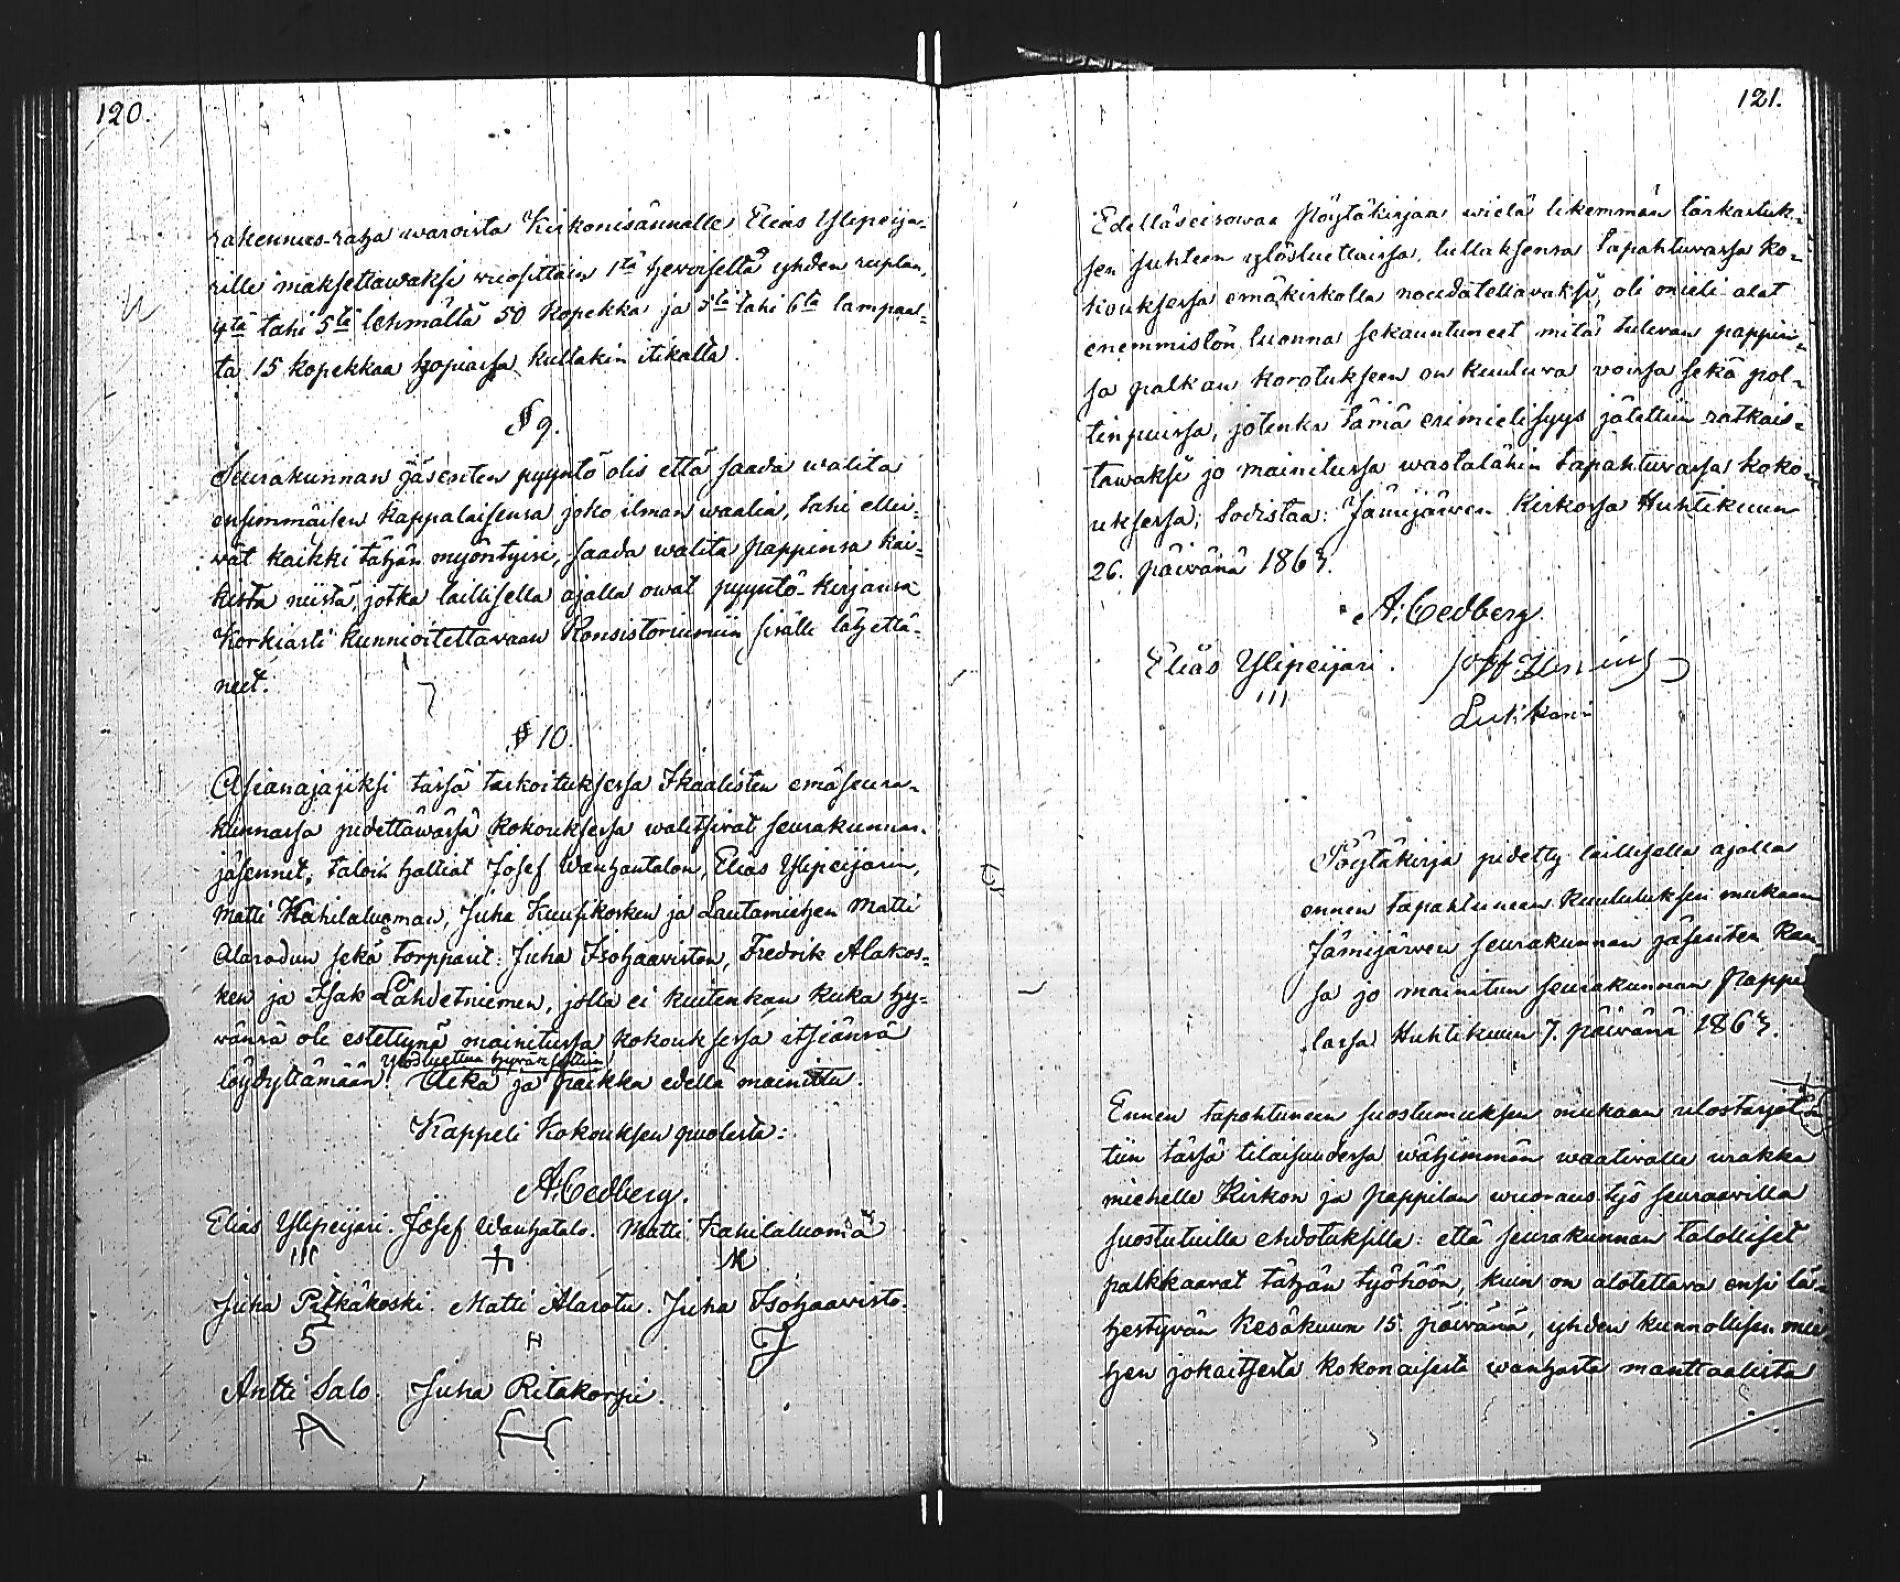 120.
rakennus-raha waroista Kirkonisännälle Elias Ylipeija-
rille maksettawaksi wuosittain 1tä hewoiselta yhden ruplan,
4tä tahi 5tä lehmältä 50 kopekka ja 5tä tahi 6ta lampaal-
ta 15 kopekkaa hopiassa kultakin itikalta.
§ 9.
Seurakunnan jäsenten pyyntö olis että saada walita
ensimmäisen kappalaisensa joko ilman waalia, tahi ellei-
wät kaikki tähän myöntyisi, saada walita pappinsa kai-
kista niistä, jotka laillisella ajalla owat pyyntö-kirjansa
Korkiasti kunnioitettavaan Konsistoriumiin sisälle lähettä-
neet.
§ 10.
Asianajajiksi tässä tarkoituksessa Ikaalisten emäseura-
kunnassa pidettäwässä kokouksessa walitsivat seurakunnan
jäsennet, taloin haltiat Josef Wanhantalon, Elias Ylipeijarin,
Matti Kahilaluoman, Juha Kuusikosken ja Lautamiehen Matti
Alarodun sekä torpparit: Juha Isohaawiston, Fredrik Alakos-
ken ja Isak Lähdetniemen, jolla ei kuitenkan kuka hy-
wänsä ole estettynä mainitussa kokouksessa itsiänsä
ylösluettua hywäksyttiin
löydyttämään. Aika ja paikka edellä mainittu.
Kappeli Kokouksen puolesta:
A. Cedberg.
Elias Ylipeijari. Josef Wanhatalo. Matti Kahilaluoma
III
M
Juha Pitkäkoski. Matti Alarotu. Juha Isohaawisto.
5 H J
Antti Salo. Juha Ritakorpi.
A
121.
Edelläseisowaa Pöytäkirjaa wielä likemmän tarkastuk-
sen suhteen ylösluettaissa, tullaksensa tapahtuvassa ko-
kouksessa emäkirkolla noudatettavaksi, oli mieli alat
enemmistön luonna sekauntuneet mitä tulevan pappin-
sa palkan korotukseen on kuuluva voissa sekä pol-
tinpuissa, jotenka tämä erimielisyys jätettiin ratkais-
tawaksi jo mainitussa wastalähin tapahtuvassa koko-
uksessa; todistaa: Jämijärven Kirkossa Huhtikuun
26. päivänä 1863.
A. Cedberg.
Elias Ylipeijari.
III
Pöytäkirja pidetty laillisella ajalla
ennen tapahtuneen kuulutuksen mukaan
Jämijärwen seurakunnan jäsenten kan
sa jo mainitun seurakunnan Pappi
lassa Huhtikuun 7. päivänä 1863.
Ennen tapahtuneen suostumuksen mukaan ulostarjot
tiin tässä tilaisuudessa wähimmän waativalle urakka
miehelle Kirkon ja pappilan wuoraus työ seuraavilla
suostutuilla ehdotuksilla: että seurakunnan talolliset
palkkaavat tähän työhöön, kuin on alotettava ensi lä-
hestyvän Kesäkuun 15. päivänä, yhden kunnollisen mie-
hen jokaitsesta kokonaisesta wanhasta manttaalista